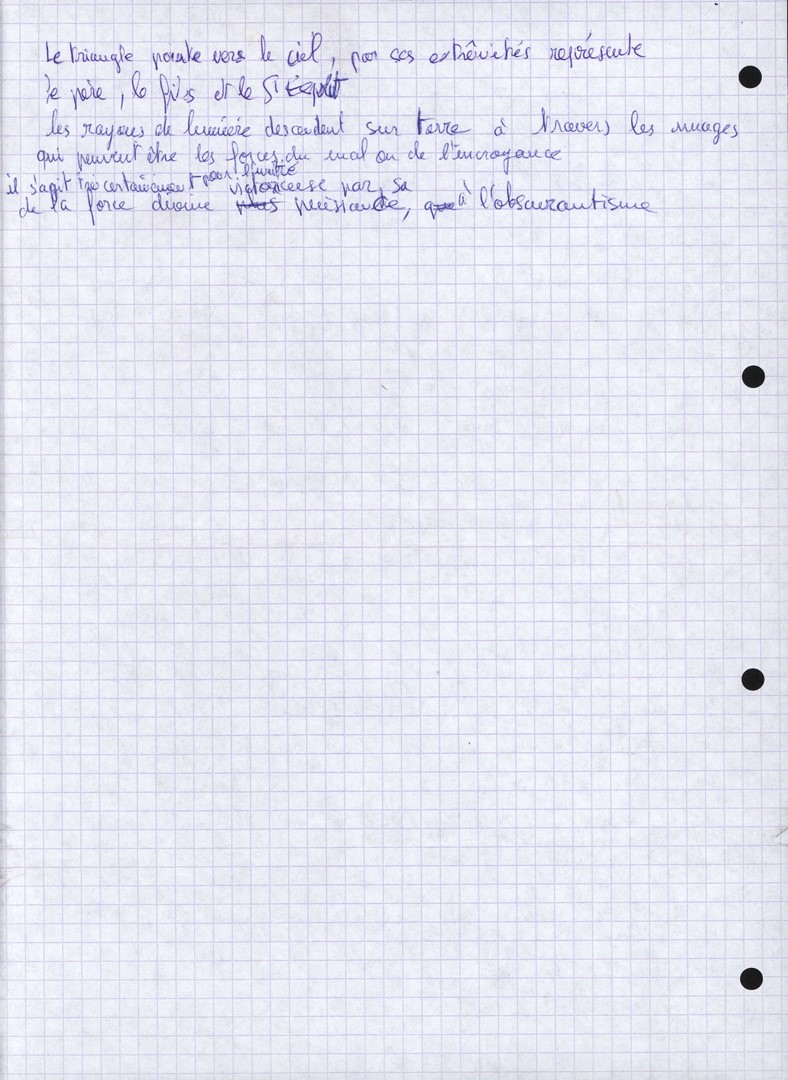 Le triangle pointe vers le ciel, par ses extrêmités représente
le père, le fils et le St Esprit
les rayons de lumière descendent sur terre à travers les nuages
qui peuvent être les forces du mal ou de l'incroyance
il s'agit certainement pour
victorieuse par sa
de la force divine puissante, à l'obscurantisme